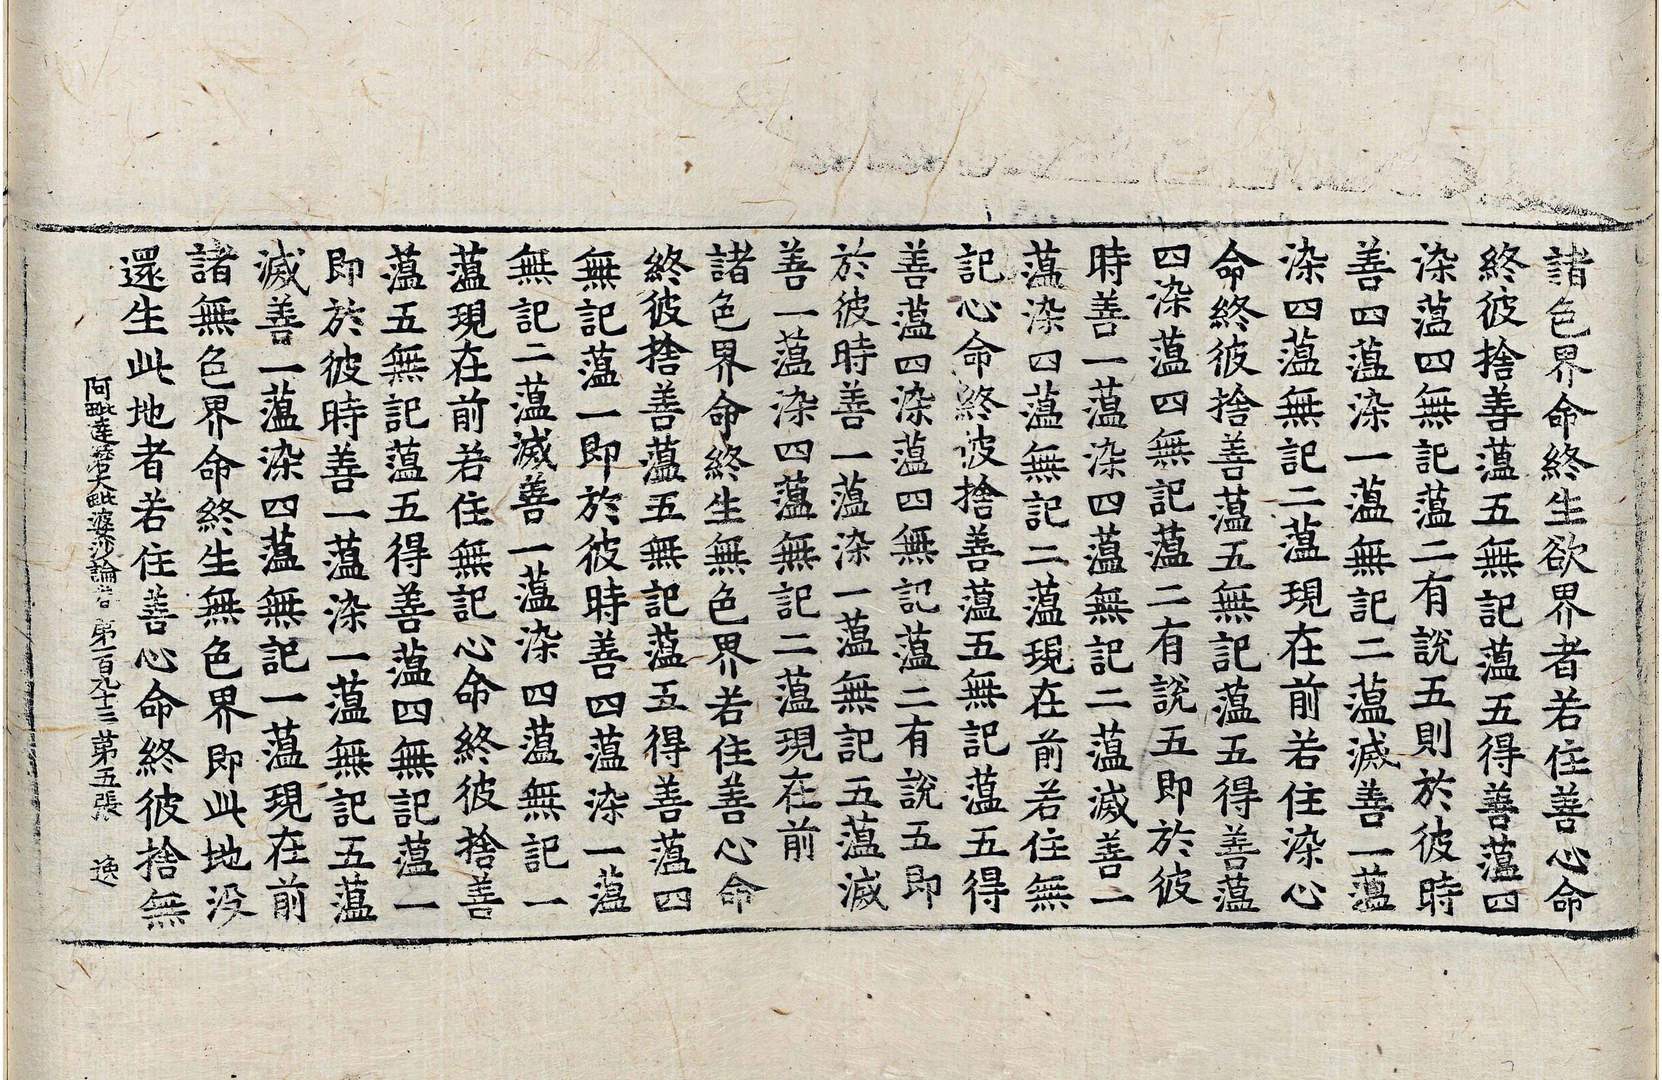 諸色界命終生欲界者若住善心命
終彼捨善蕰五無記蕰五得善蕰四
染蕰四無記蕰二有說五則於彼時
善四蕰染一蕰無記二蕰滅善一蕰
染四蕰無記二蕰現在前若住染心
命終彼捨善蕰五無記蕰五得善蕰
四染蕰四無記蕰二有說五即於彼
時善一蕰染四蕰無記二蕰滅善一
蕰染四蕰無記二蕰現在前若住無
記心命終彼捨善蕰五無記蕰五得
善蕰四染蕰四無記蕰二有說五即
於彼時善一蕰染一蕰無記五蕰滅
善一蕰染四蕰無記二蕰現在前
諸色界命終生無色界若住善心命
終彼捨善蕰五無記蕰五得善蕰四
無記蕰一即於彼時善四蕰染一蕰
無記二蕰滅善一蕰染四蕰無記一
蕰現在前若住無記心命終彼捨善
蕰五無記蕰五得善蕰四無記蕰一
即於彼時善一蕰染一蕰無記五蕰
滅善一蕰染四蕰無記一蕰現在前
諸無色界命終生無色界即此地没
還生此地者若住善心命終彼捨無
阿毗達磨大毗婆沙論 第一百九十三 第五張 逸